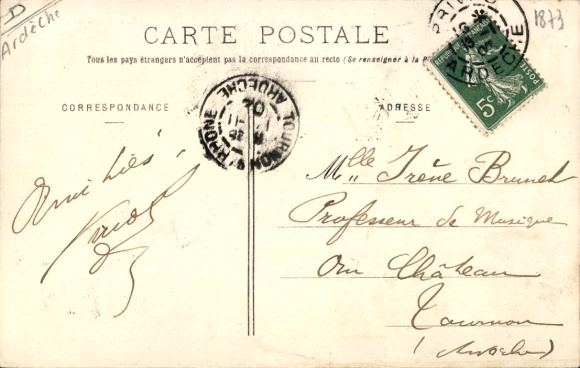 D
Ardèche
1873
CARTE POSTALE
Tous les pays étrangers n'acceptent pas la correspondance au recto (Se renseigner à la
CORRESPONDANCE
ADRESSE
PRIVAS
ARDECHE
5c
TOURNON S RHONE
ARDECHE
Amitiés
Mlle Irène Brunet
Professeur de Musique
au Château
Tournon
(Ardèche)